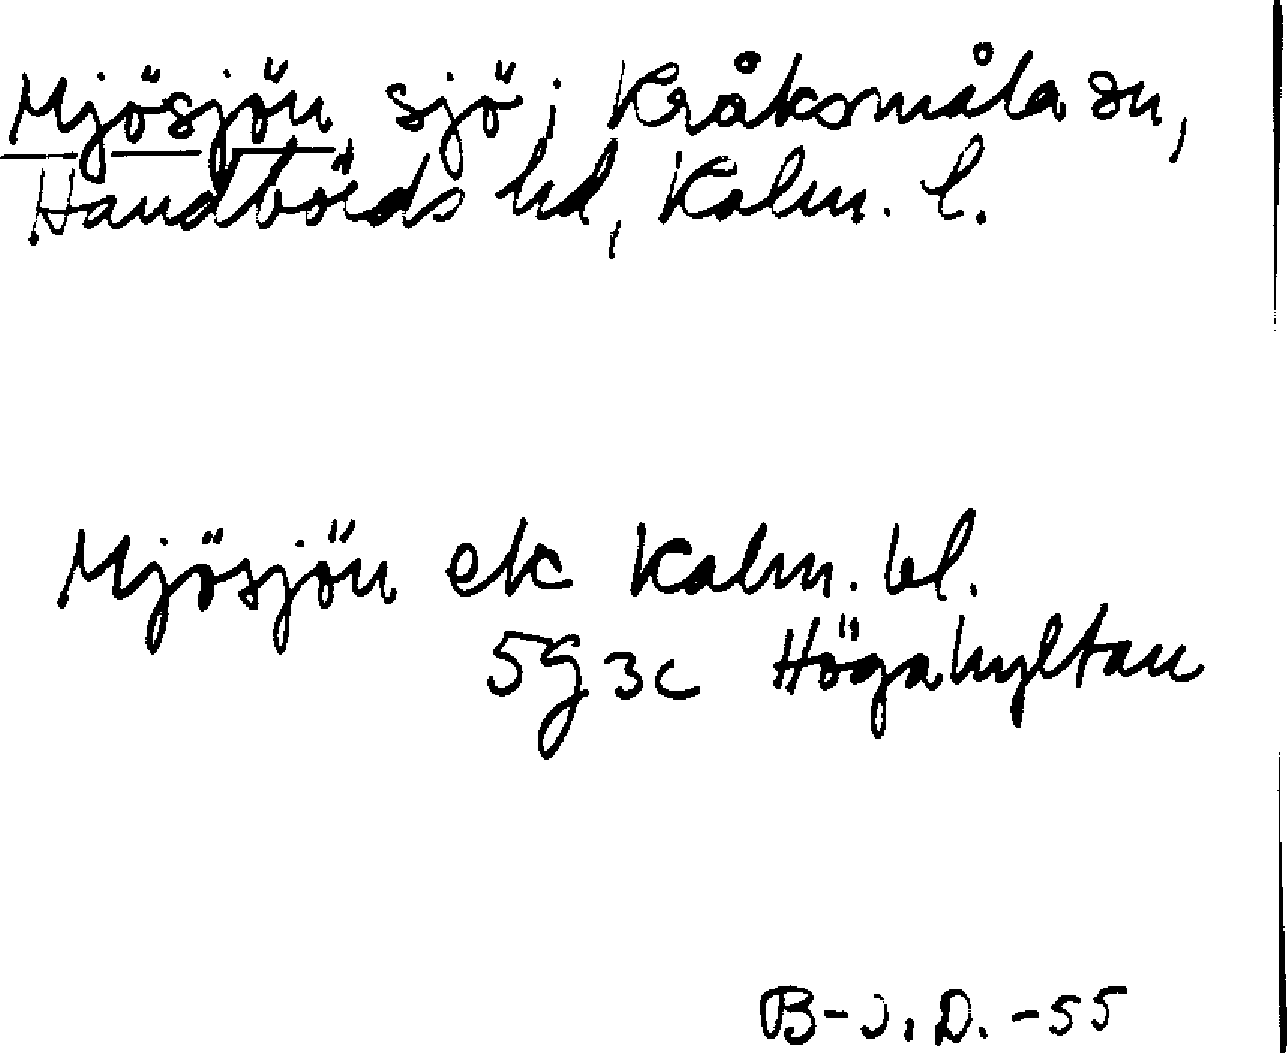 Mjösjön, sjö i Kråksmåla sn,
Handbörds hd, Kalm. l.
Mjösjön ek Kalm. bl.
5g 3c Högahyltan
B-J. D. -55